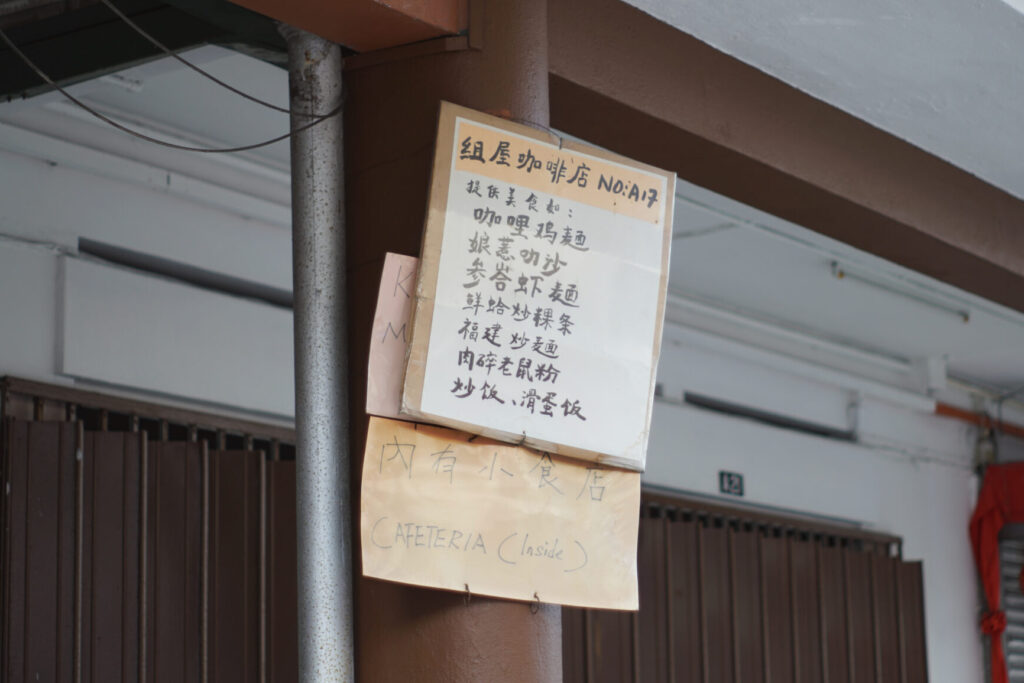 组屋咖啡店 NO:A17
提供美食如：
咖哩鸡麵
娘惹叻沙
参峇虾麵
鲜蛤炒粿条
福建炒麵
肉碎老鼠粉
炒饭、滑蛋饭
K
M
內有小食店
CAFETERIA (Inside)
42